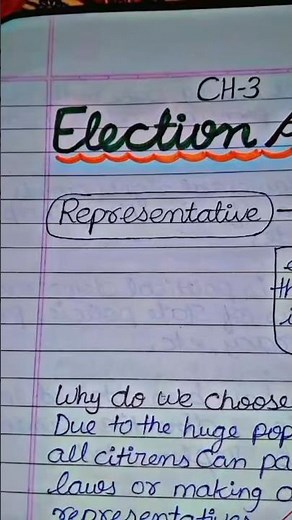 CH-3
Election
Representative
th
i
Why do we choose
Due to the huge pop
all citizens can pa
laws or making
representatives